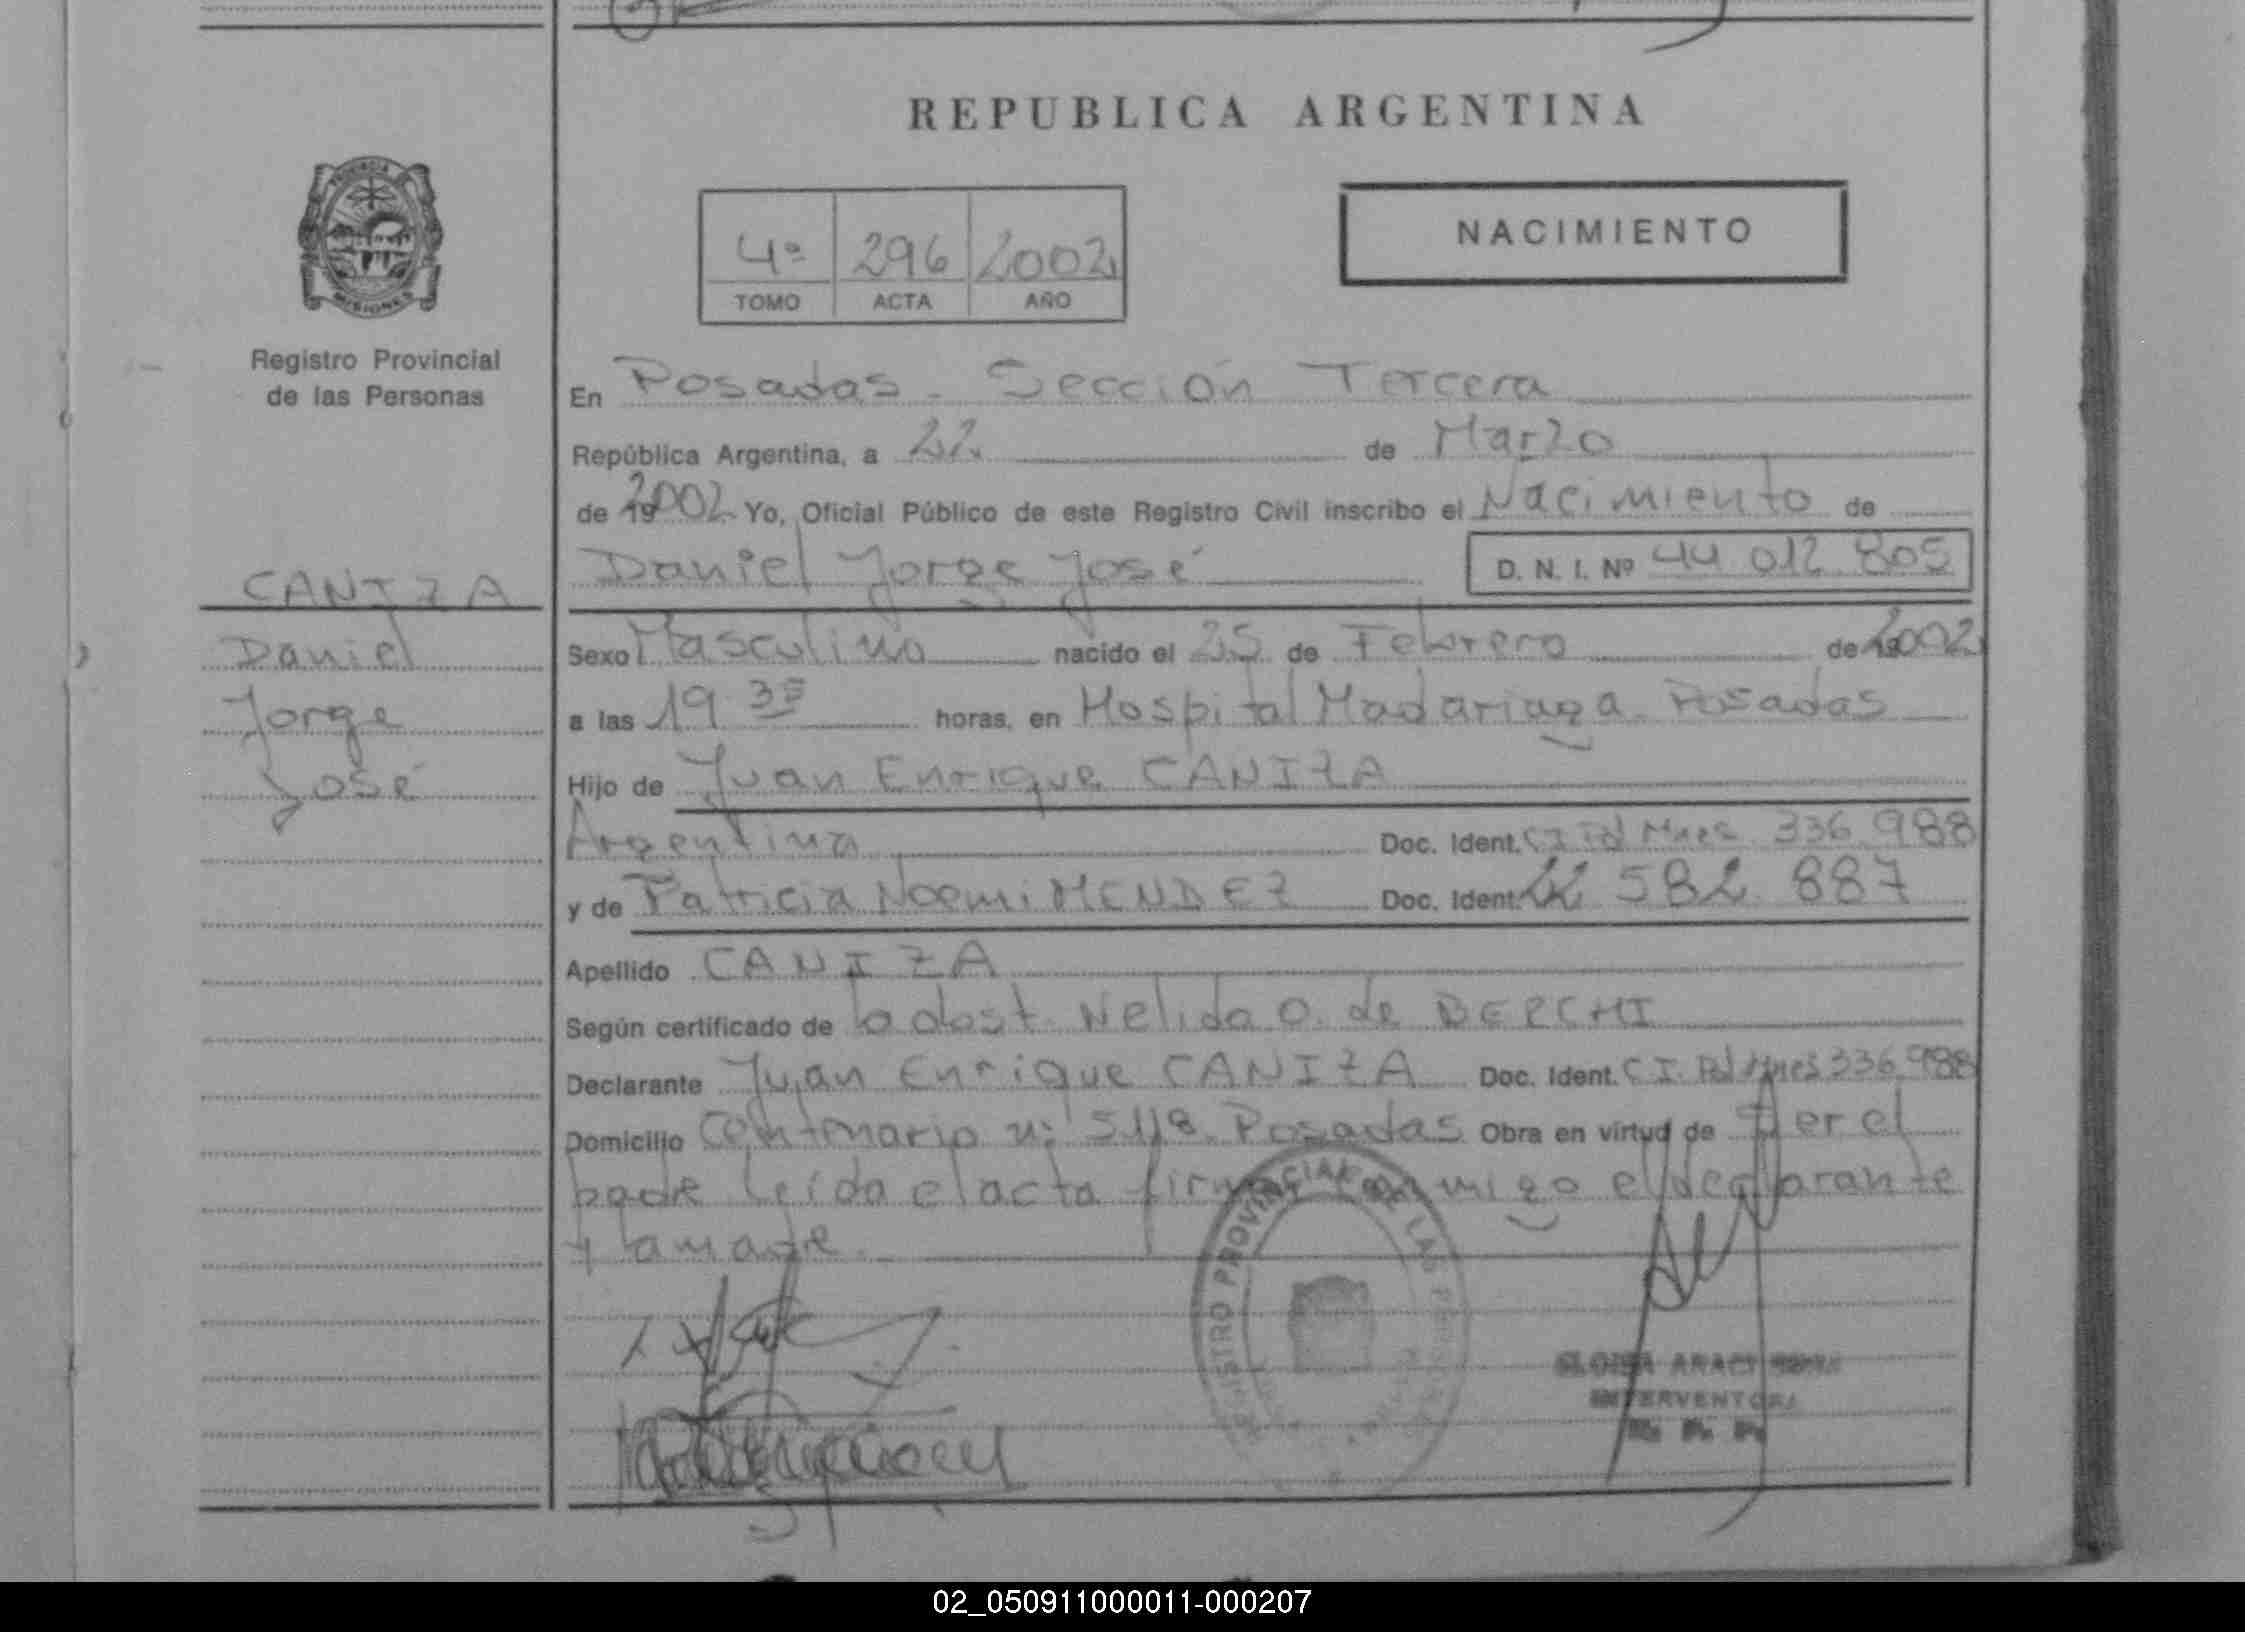 REPUBLICA ARGENTINA
PROVINCIA
MISIONES
Registro Provincial
de las Personas
4º 296 2002
TOMO ACTA AÑO
NACIMIENTO
En Posadas - Sección Tercera
República Argentina, a 22 de Marzo
de 2002 Yo, Oficial Público de este Registro Civil inscribo el Nacimiento de
Daniel Jorge José D. N. I. Nº 44 012 805
CANIZA
Daniel
Jorge
José
Sexo Masculino nacido el 25 de Febrero de 2002
a las 19 35 horas, en Hospital Madariaga Posadas
Hijo de Juan Enrique CANIZA
Argentina Doc. Ident. CI Pol Mnes 336 988
y de Patricia Noemi MENDEZ Doc. Ident. 22 582 887
Apellido CANIZA
Según certificado de la obst. Nelida O. de
Declarante Juan Enrique CANIZA Doc. Ident. C.I. Pol Mnes 336 988
Domicilio Centenario nº 5118 Posadas Obra en virtud de Ser el
padre Leída el acta firman conmigo el declarante
y la madre.
REGISTRO PROVINCIAL DE LAS PERSONAS
INTERVENTORA
R. P. P.
02_050911000011-000207